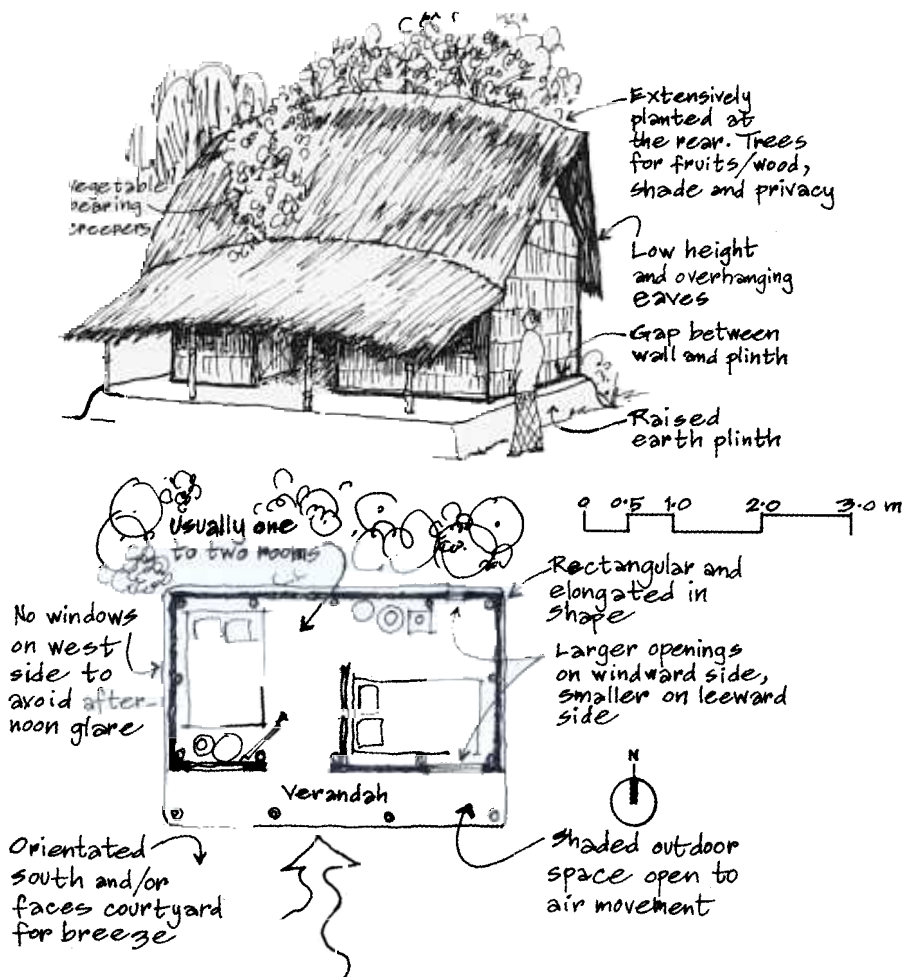 Extensively
planted at
the rear. Trees
for fruits/wood,
shade and privacy
Vegetable
bearing
creepers
Low height
and overhanging
eaves
Gap between
wall and plinth
Raised
earth plinth
0 0.5 1.0 2.0 3.0 m
Usually one
to two rooms
Rectangular and
elongated in
shape
No windows
on west
side to
avoid after-
noon glare
Larger openings
on windward side,
smaller on leeward
side
N
Verandah
Orientated
south and/or
faces courtyard
for breeze
Shaded outdoor
space open to
air movement